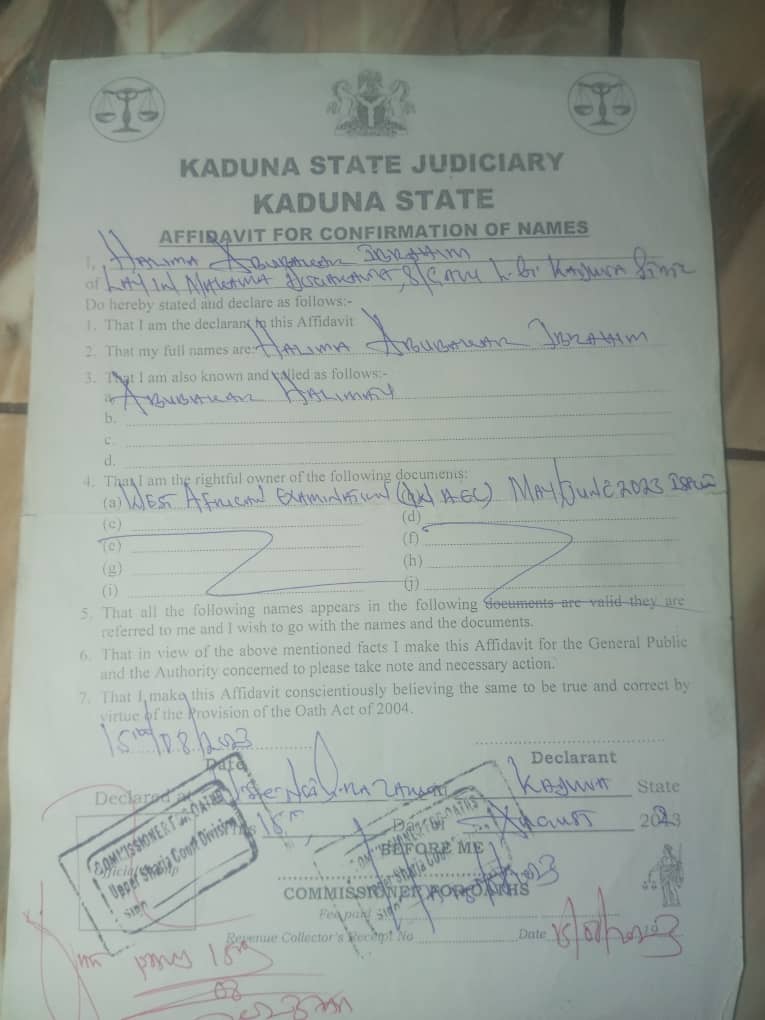 KADUNA STATE JUDICIARY
KADUNA STATE
AFFIDAVIT FOR CONFIRMATION OF NAMES
I, HALIMA ABUBAKAR IBRAHIM
of LAYIN MAKAMA KADUNA State
Do hereby stated and declare as follows:-
1. That I am the declarant in this Affidavit
2. That my full names are: HALIMA ABUBAKAR IBRAHIM
3. That I am also known and called as follows:-
a. ABUBAKAR HALIMAH
b.
c.
d.
4. That I am the rightful owner of the following documents:
(a) WEST AFRICAN EXAMINATION MAY/JUNE 2023
(c) (d)
(e) (f)
(g) (h)
(i) (j)
5. That all the following names appears in the following documents are valid they are
referred to me and I wish to go with the names and the documents.
6. That in view of the above mentioned facts I make this Affidavit for the General Public
and the Authority concerned to please take note and necessary action.
7. That I make this Affidavit conscientiously believing the same to be true and correct by
virtue of the Provision of the Oath Act of 2004.
15th/08/2023
Date Declarant
Declared at KADUNA State
This 15th Day August 2023
BEFORE ME
COMMISSIONER FOR OATHS
Upper Sharia Court Division
Sign
COMMISSIONER FOR OATHS
Fee paid
Revenue Collector's Receipt No Date 15/08/2023
15th
08